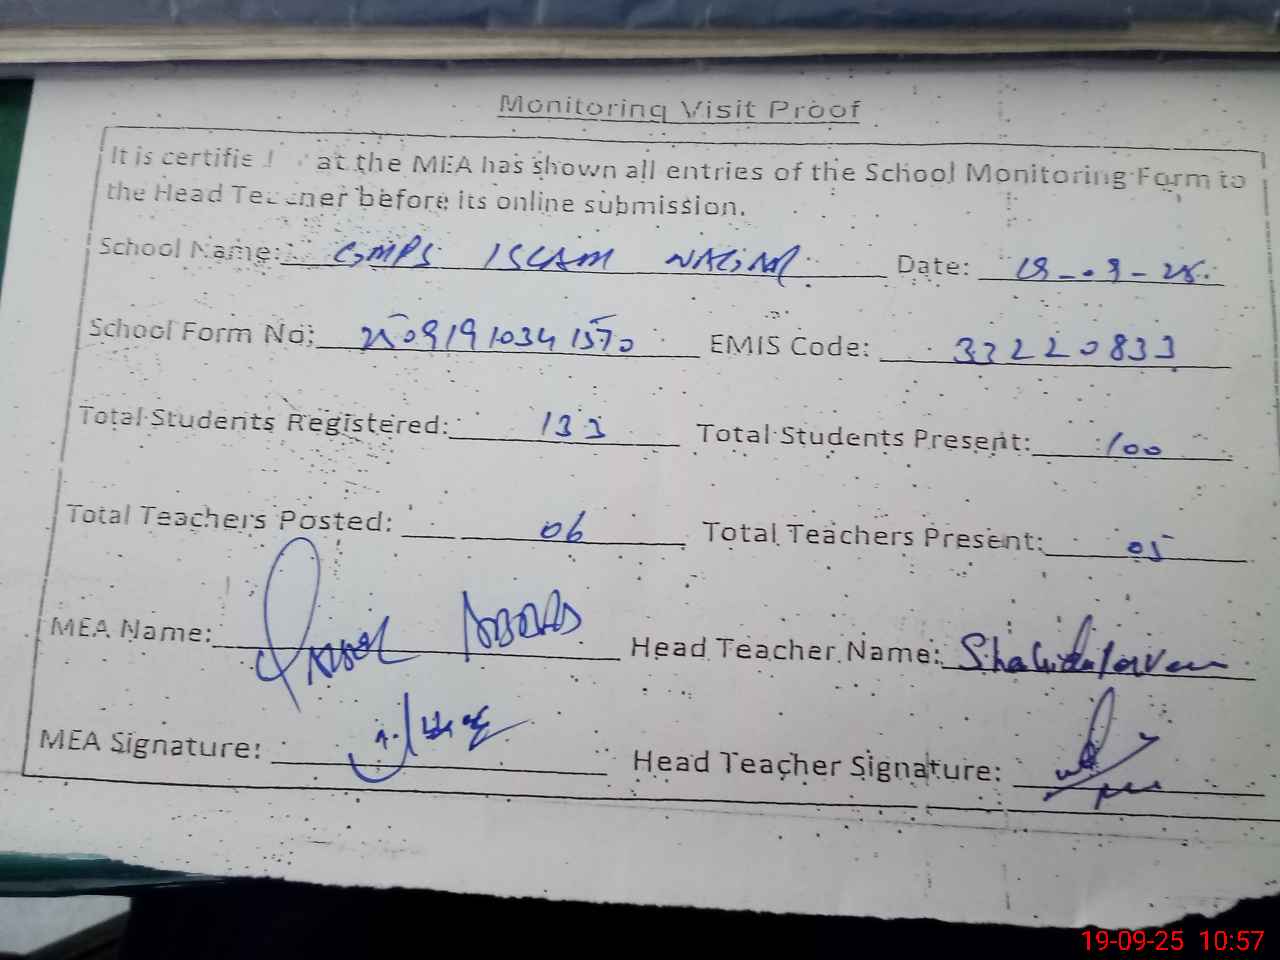 Monitoring Visit Proof
It is certifie at the MEA has shown all entries of the School Monitoring Form to
the Head Teacher before its online submission.
School Name: GMPS ISLAM NAGAR Date: 19-09-25.
School Form No: 25091910341570 EMIS Code: 32220833
Total Students Registered: 133 Total Students Present: 100
Total Teachers Posted: 06 Total Teachers Present: 05
MEA Name: ABBAS Head Teacher Name: Shahida Parveen
MEA Signature: Head Teacher Signature:
19-09-25 10:57